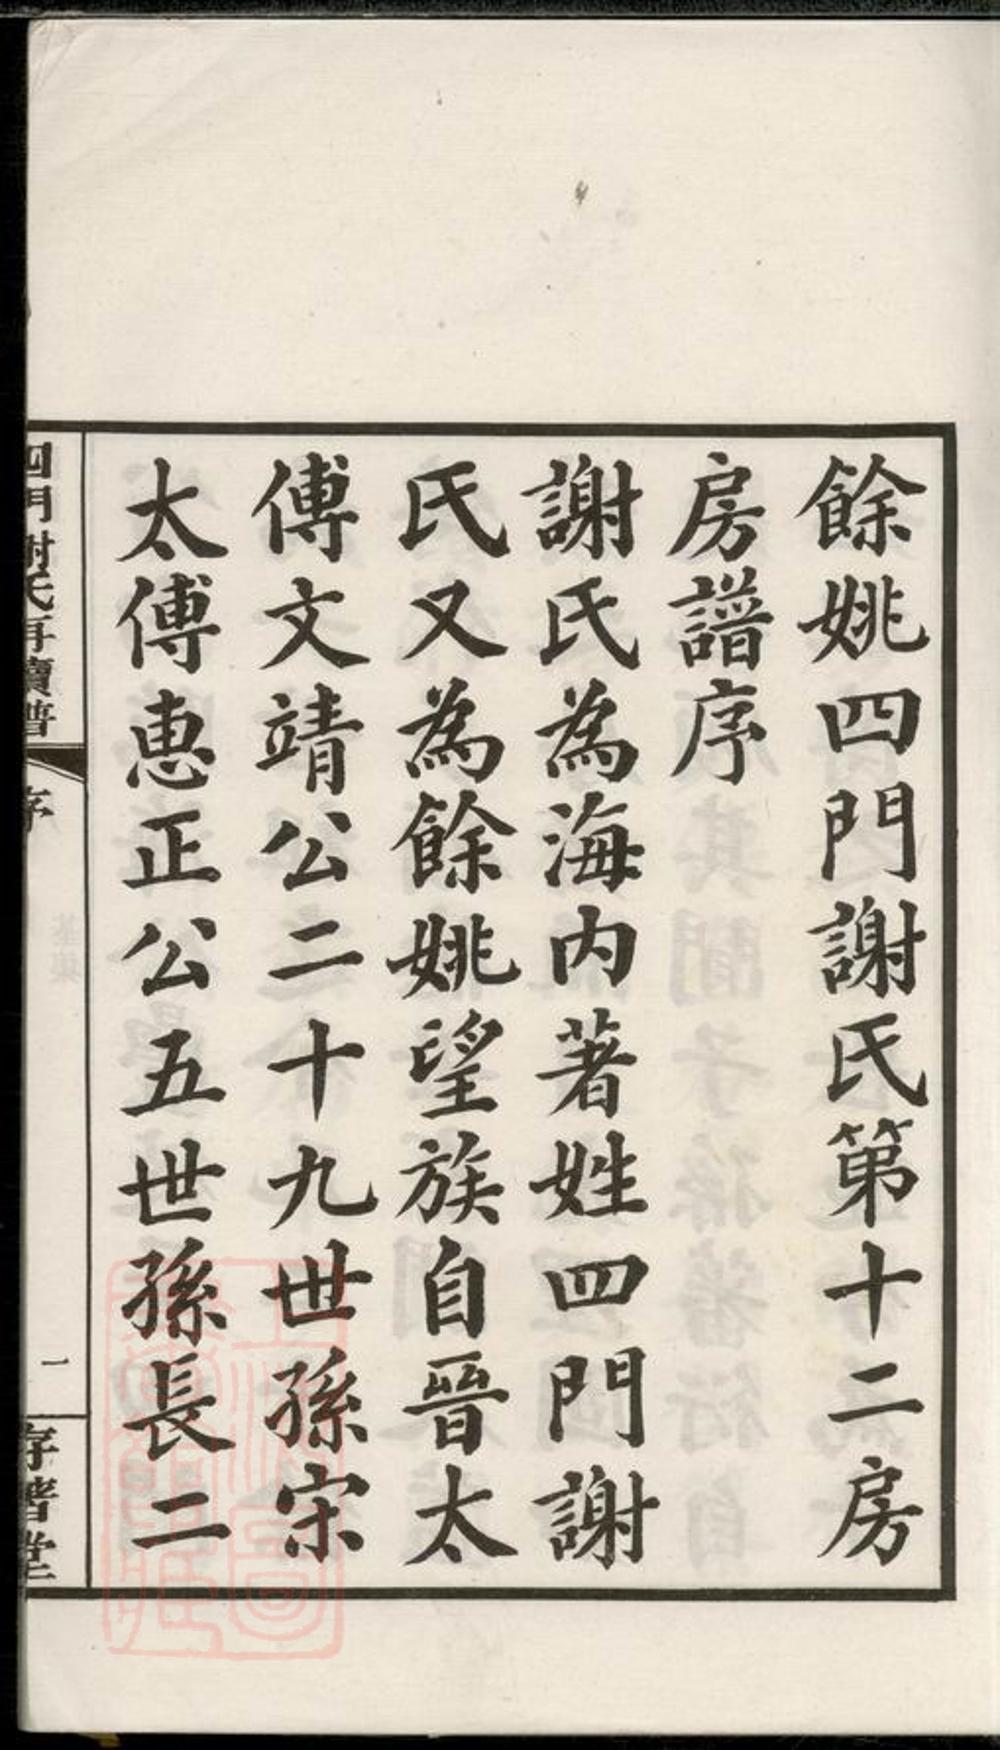 餘姚四門謝氏第十二房
房譜序
謝氏為海內著姓四門謝
氏又為餘姚望族自晉太
傅文靖公二十九世孫宋
太傅惠正公五世孫長二
四門謝氏再續譜
序
一
存著堂